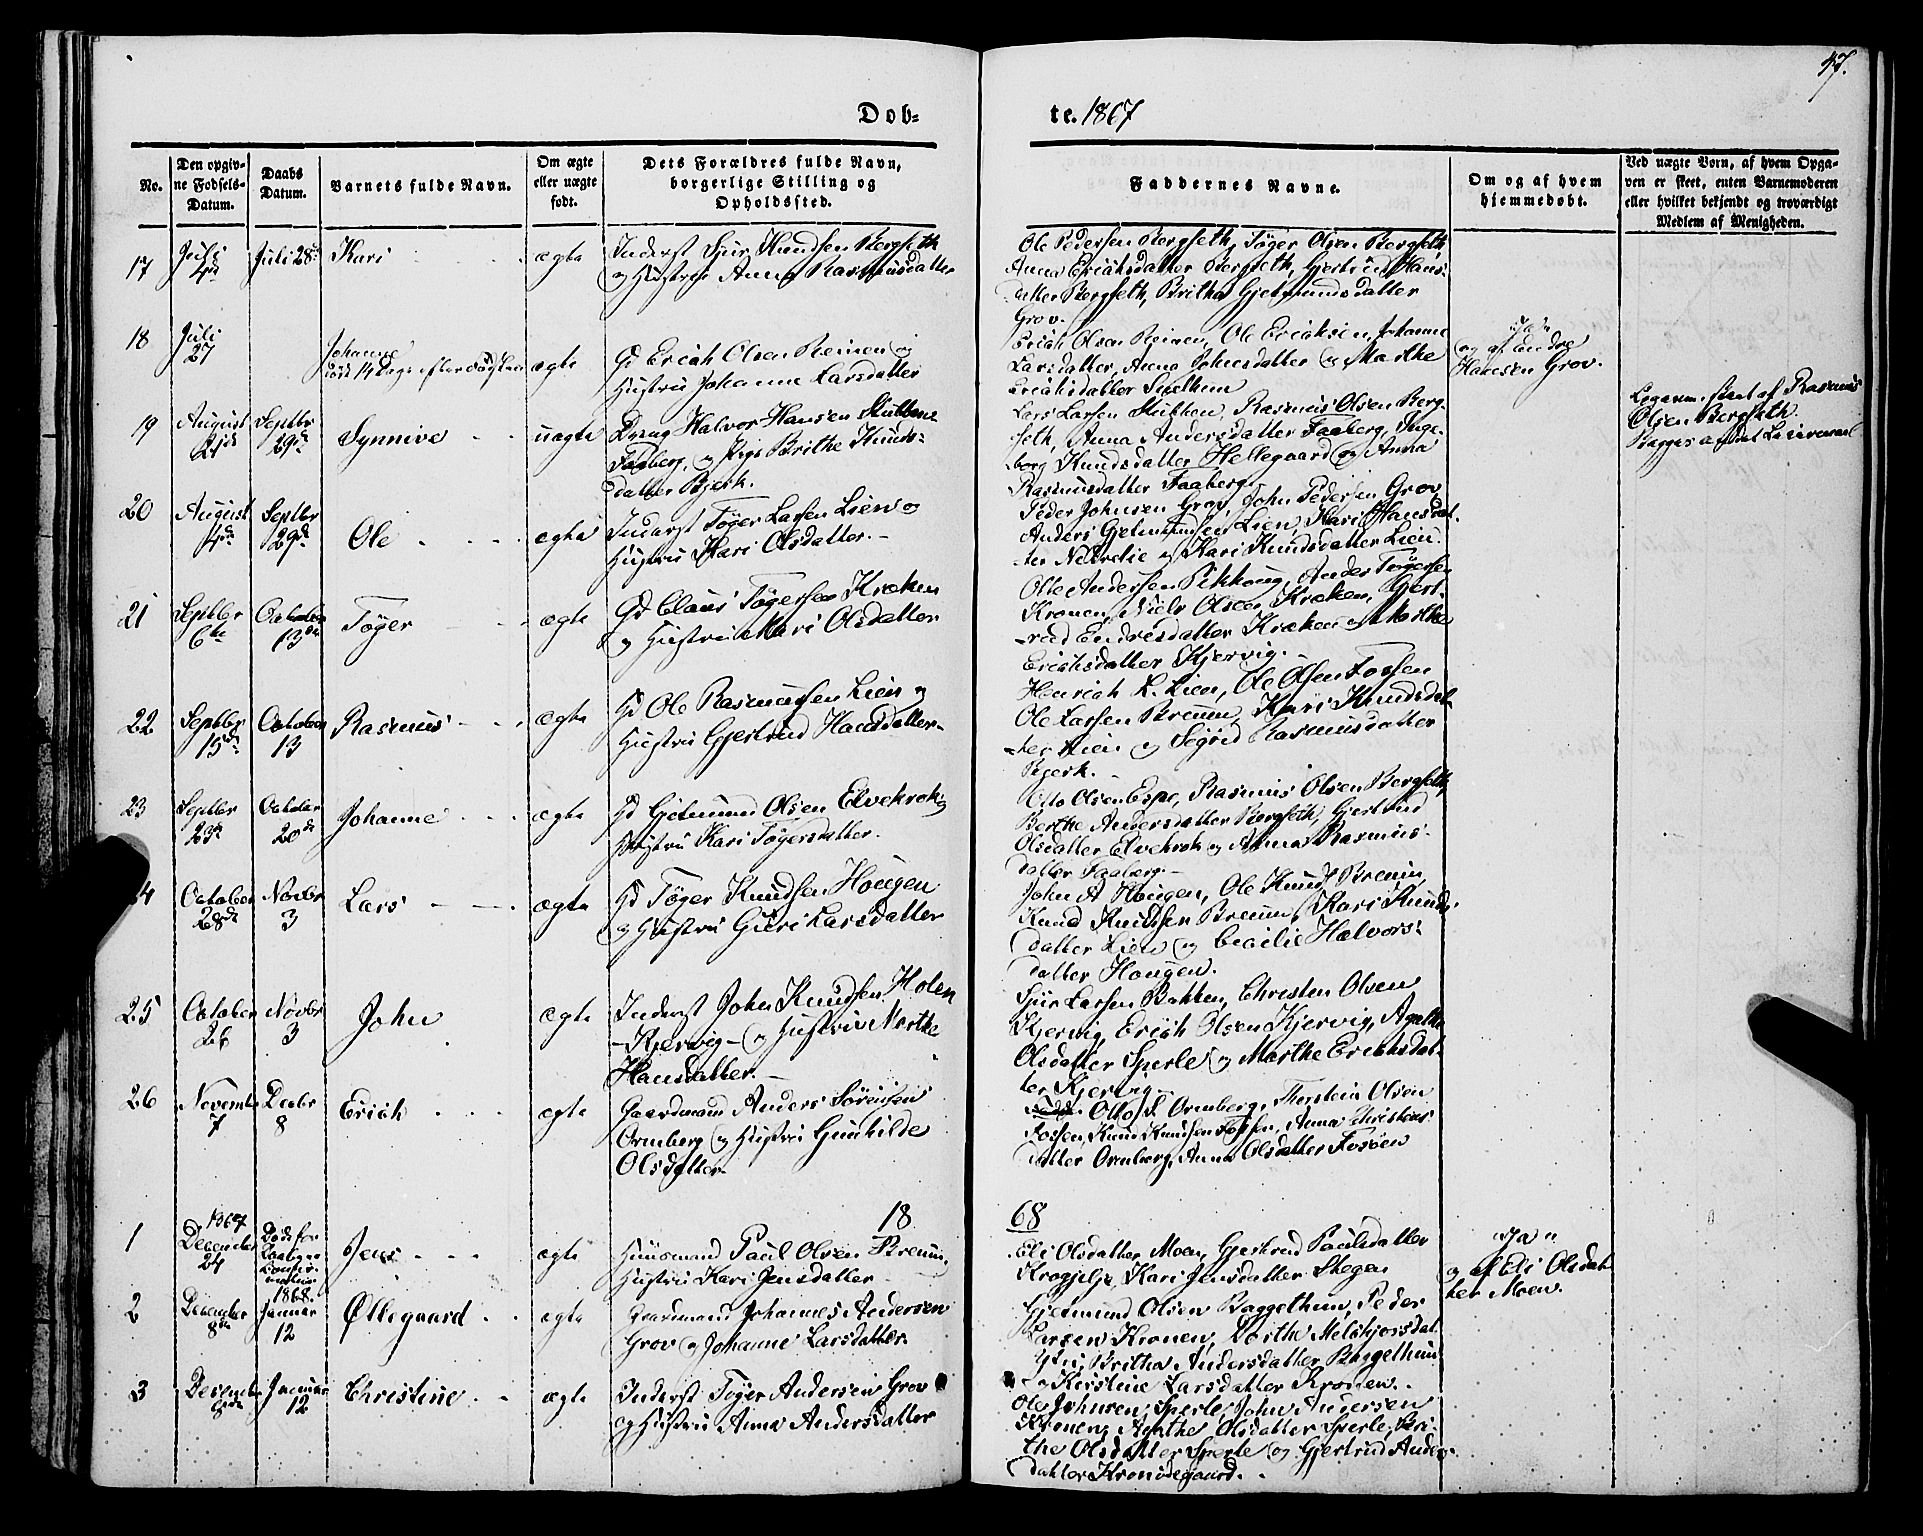 47.
Døb-
te. 1867
No.
Den opgiv-
ne Fødsels-
Datum.
Daabs
Datum.
Barnets fulde Navn.
Om ægte
eller uægte
født.
Dets Forældres fulde Navn,
borgerlige Stilling og
Opholdssted.
Faddernes Navne.
Om og af hvem
hjemmedøbt.
Ved uægte Børn, af hvem Opga-
ven er skeet, enten Barnemoderen
eller hvilket bekjendt og troværdigt
Medlem af Menigheden.
17 Juli Juli 28de Kari ægte Inderst Sjur Knudsen Bergseth
og Hustru Anna Rasmusdatter
Ole Pedersen Bergseth, Tøger Olsen Bergseth,
Anna Erichsdatter Bergseth, Gjertrud Hans-
datter Bergseth, Britha Gjelmundsdatter
Grov.
18 Juli
27 Johanne
ægte Gd Erich Olsen Reinen og
Hustru Johanne Larsdatter
Erich Olsen Reinen, Ole Erichsen, Johanne
Larsdatter, Anna Johnsdatter og Marthe
Erichsdatter
Ja
og af Endre
Hansen Grov.
19 August Septbr
29de Synnive uægte Dreng Halvor Hansen Stubben
Faaberg, og Pige Brithe Knuds-
datter Bjerk.
Lars Larsen Stubben, Rasmus Olsen Berg-
seth, Anna Andersdatter Faaberg, Inge-
borg Knudsdatter Hellegaard og Anna
Rasmusdatter Faaberg.
af Rasmus
Olsen Bergseth
20 August Septbr
4de 29de Ole ægte Inderst Tøger Larsen Lien og
Hustru Kari Olsdatter.
Peder Johnsen Grov, John Pedersen Grov,
Anders Gjelmundsen Lien, Kari Hansdat-
ter Nedrelie og Kari Knudsdatter Lien.
21 Septbr October
6te 13de Tøger ægte Gd Claus Tøgersen Kræken
og Hustru Kari Olsdatter
Olle Andersen Pikhoug, Anders Tøgersen
Kronen, Niels Olsen Kræken, Gjert-
rud Endresdatter Kræken og Marthe
Erichsdatter Kjervig.
22 Septbr October
15de 13 Rasmus ægte Gd Ole Rasmussen Lien og
Hustru Gjertrud Hansdatter
Henrich L. Lien, Ole Olsen Fossen
Ole Larsen Breum, Kari Knudsdat-
ter Lien og Segrid Rasmusdatter
Bjerk.
23 Septbr October
23de 20de Johanne ægte Gd Gjelmund Olsen Elvekrok og
Hustru Kari Tøgersdatter.
Otto Olsen Espe, Rasmus Olsen Bergseth,
Berthe Andersdatter Bergseth, Gjertrud
Olsdatter Elvekrok og Anna Rasmus-
datter Faaberg.
4 October Novbr
28de 3 Lars ægte Gd Tøger Knudsen Hougen
og Hustru Guri Larsdatter
John A Hougen, Ole Knuds Breum,
Knud Knudsen Breum, Kari Knuds-
datter Lien og Cecilie Halvors-
datter Hougen.
25 October Novbr
26 3 John ægte Inderst John Knudsen Holen
Kjervig og Hustru Marthe
Hansdatter.
Sjur Larsen Bakken, Christen Olsen
Kjervig, Erich Olsen Kjervig, Agathe
Olsdatter Sperle og Marthe Erichsdat-
ter Kjervig
26 Novembr Decbr
7 8 Erich ægte Gaardmand Anders Sørensen
Ormberg og Hustru Gunhilde
Olsdatter
Otto S. Ormberg, Thorstein Olsen
Fossen, Knud Knudsen Fossen, Anna Christens-
datter Ormberg, Anna Olsdatter Fossen
18
68
1 1867
December
24 Død før
Jens ægte Huusmand Paul Olsen Breum,
Hustru Kari Jensdatter
Eli Olsdatter Moen, Gjertrud Paulsdatter
Kari Jensdatter Skegen
Ja
og af Eli Olsdat-
ter Moen.
2 December 1868.
8de Januar
12 Øllegaard ægte Gaardmand Johannes Andersen
Grov og Johanne Larsdatter
Gjelmund Olsen Baggethun, Peder
Larsen Kronen, Dorthe
Britha Andersdatter Baggethun
og Kirstine Larsdatter Kronen.
3 December Januar
8de 12 Christine ægte Inderst Tøger Andersen Grov
og Hustru Anna Andersdatter
Ole Johnsen Sperle, John Andersen
Kronen, Agathe Olsdatter Sperle, Bri-
the Olsdatter Sperle og Gjertrud Anders-
datter Kronedegaard.